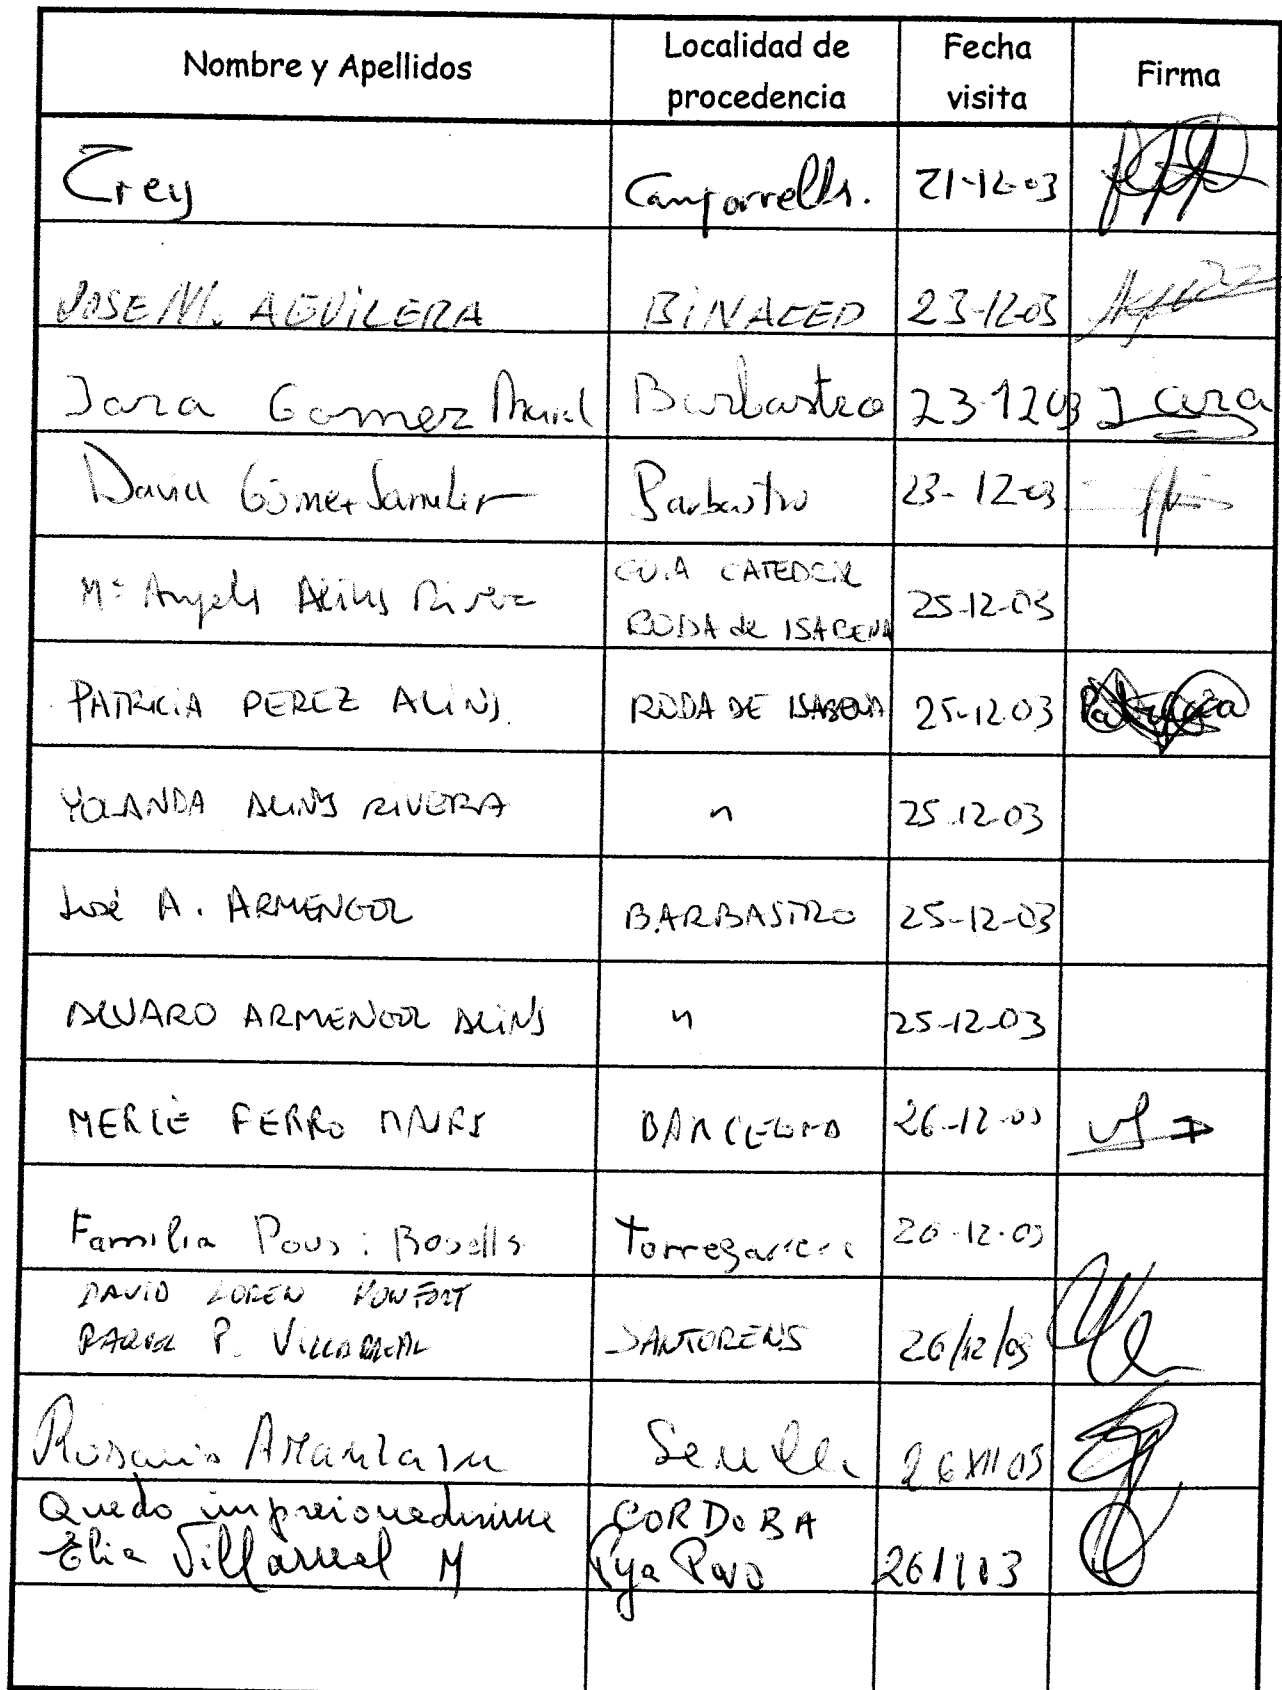 Nombre y Apellidos Localidad de procedencia Fecha visita Firma
Trey Camporrells. 21-12-03
JOSE M. AGUILERA BINACED 23-12-03
Jara Gomez Barbastro 23-12 03 Jara
David Gómez Barbastro 23-12-03
Mª Angels Alins Rivera GUIA CATEDRAL 25-12-03
RODA de ISABENA
PATRICIA PEREZ ALINS. RODA DE ISABENA 25-12-03 Patricia
YOLANDA ALINS RIVERA " 25-12-03
José A. ARMENGOL BARBASTRO 25-12-03
ALVARO ARMENGOL ALINS " 25-12-03
MERCÈ FERRO BARCELONA 26-12-03
Familia Pous i 26-12-03
DAVID LOREN MONFORT
RAQUEL P. VILLARREAL SANTORENS 26/12/03
Rosario Sevilla 26 XII 03
Quedo CORDOBA
Elia Villarreal M 26/1